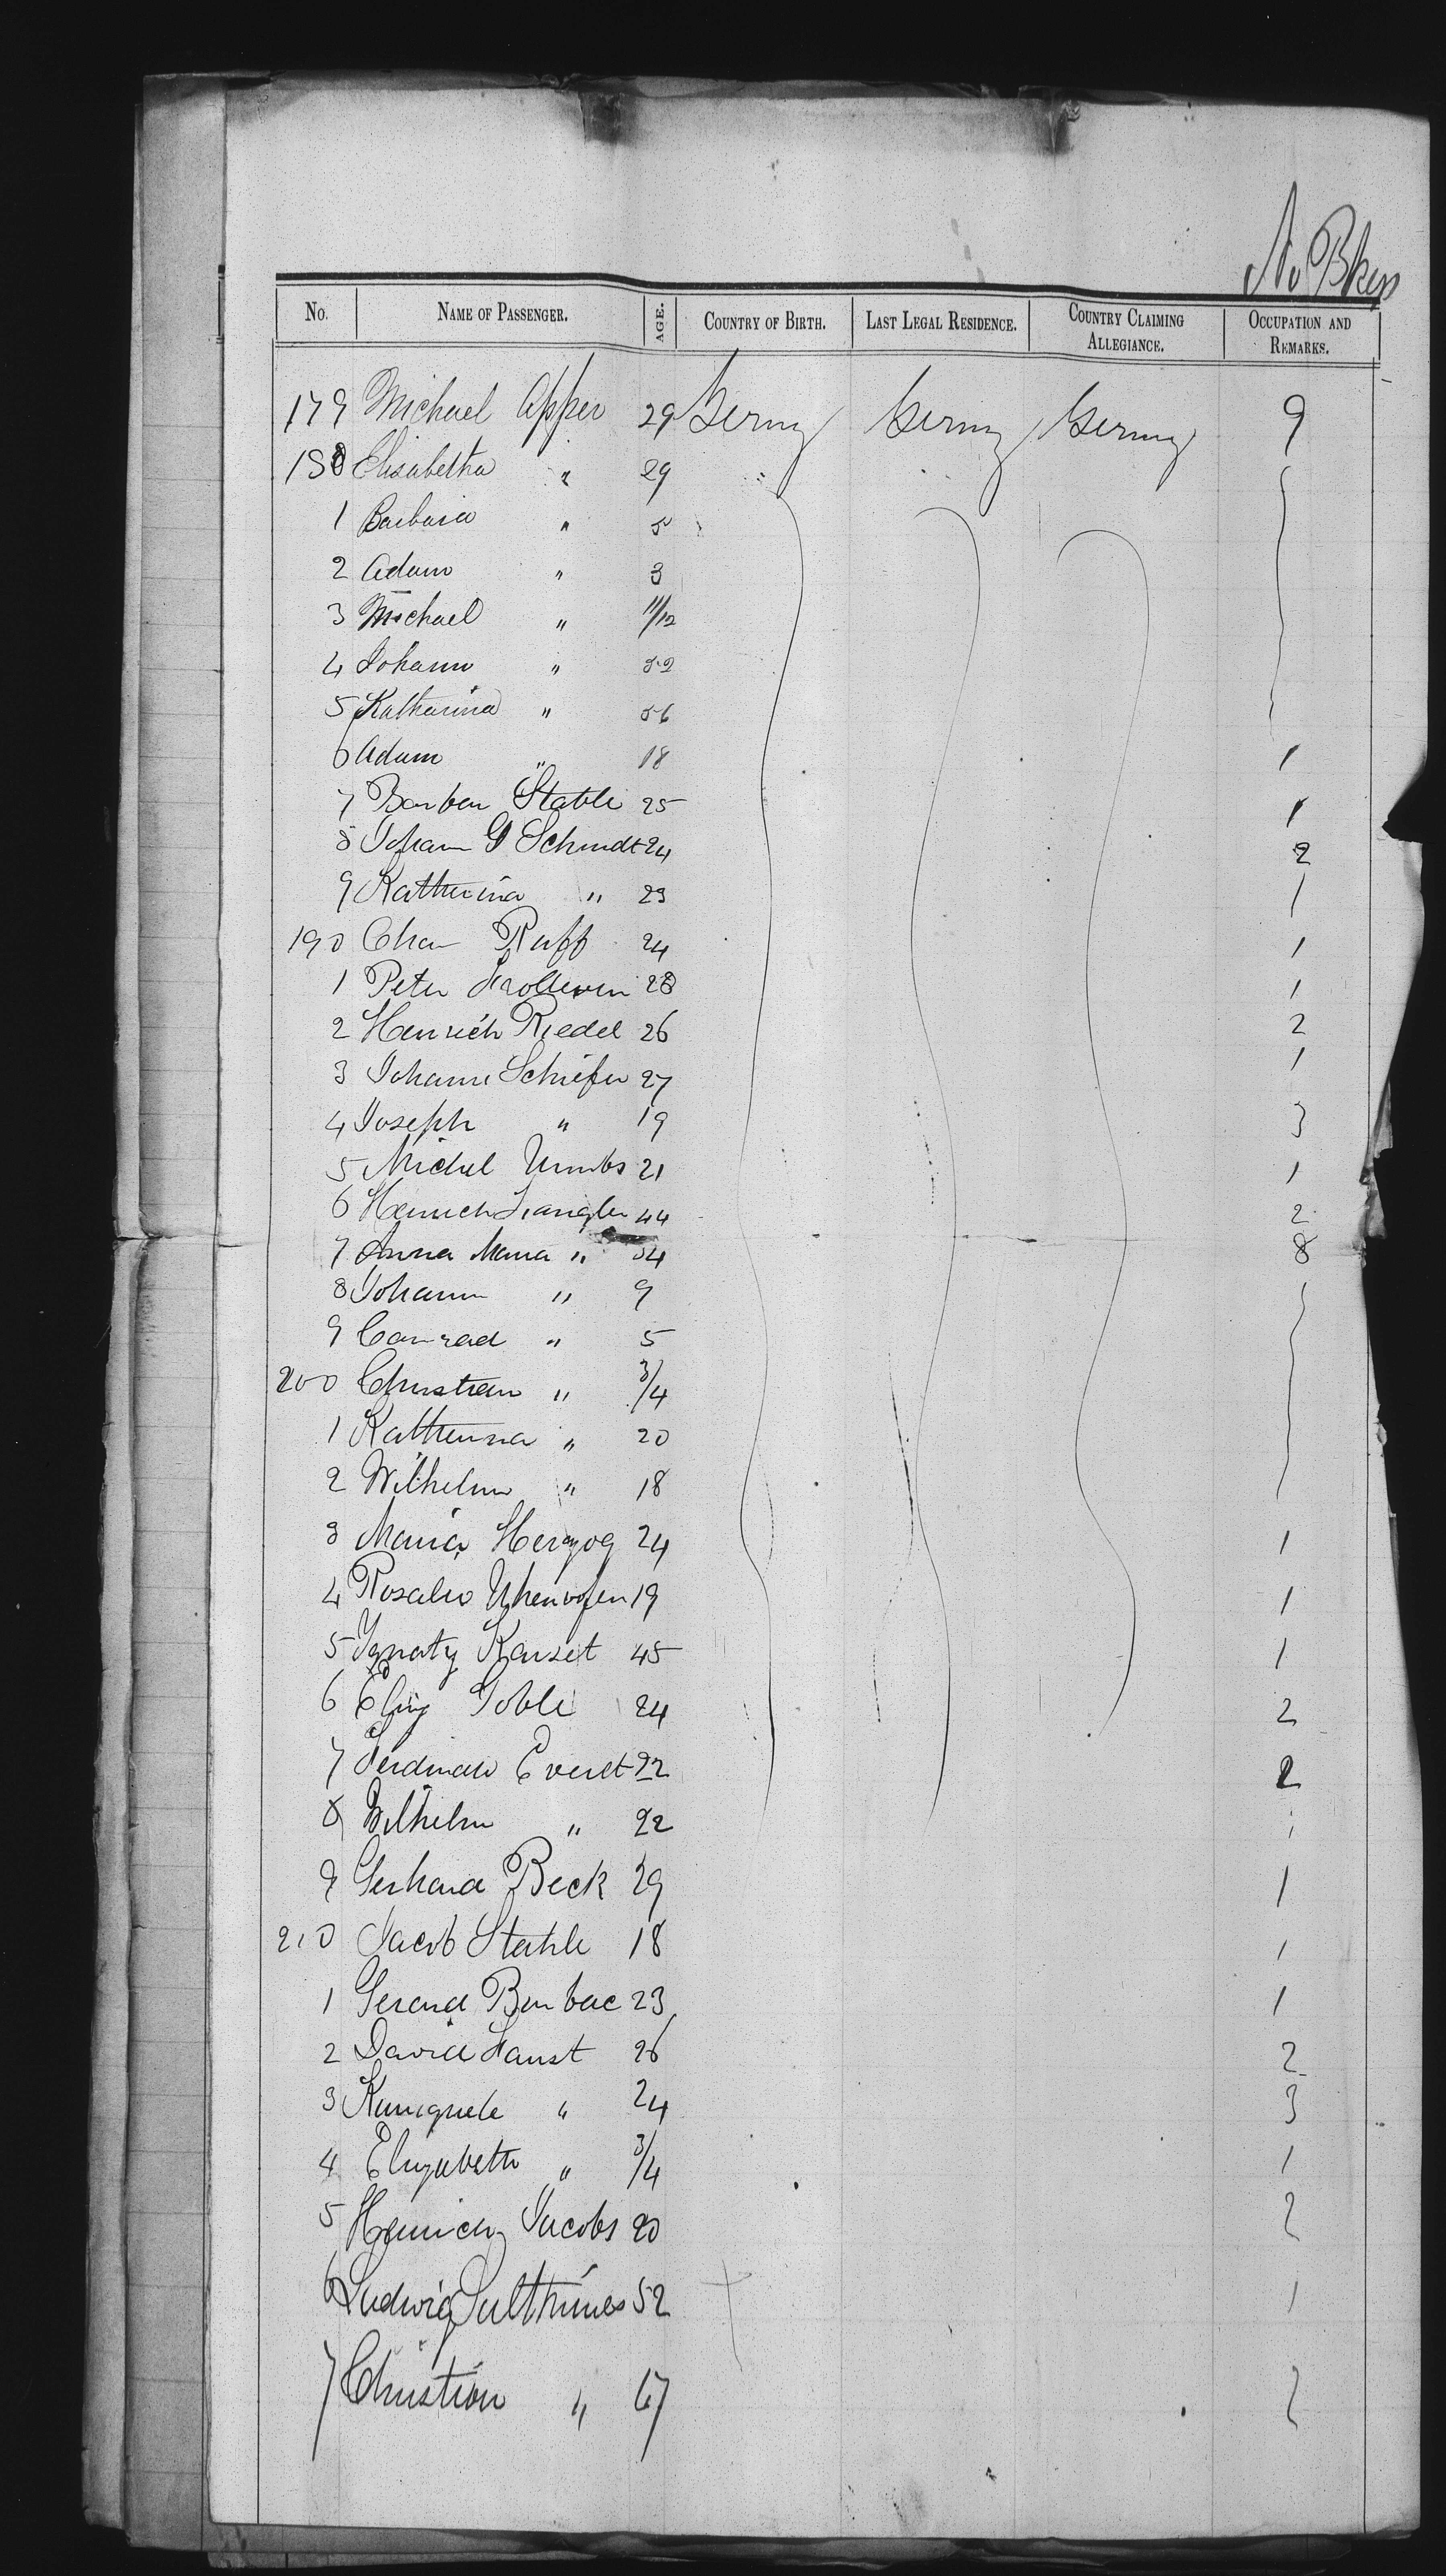 No Bkgs
No. NAME OF PASSENGER. AGE. COUNTRY OF BIRTH. LAST LEGAL RESIDENCE. COUNTRY CLAIMING ALLEGIANCE. OCCUPATION AND REMARKS.
179 Michael Apper 29 Germy Germy Germy 9
180 Elisabetha " 29
1 Barbara " 5
2 Adam " 3
3 Michael " 11/12
4 Johann " 52
5 Katharina " 56
6 Adam " 18 1
7 Stable 25 1
8 Johann G Schmidt 24 2
9 Katherina " 23 1
190 Ruff 24 1
1 Peter 28 1
2 Heinrich Riedel 26 2
3 Johann Schiefer 27 1
4 Joseph " 19 3
5 Michel Umbs 21 1
6 Heinrich 44 2
7 Anna Maria " 34 8
8 Johann " 9
9 Conrad " 5
200 Christian " 3/4
1 Katherina " 20
2 Wilhelm " 18
3 Maria Herzog 24 1
4 Rosalie 19 1
5 Ignatz 45 1
6 24 2
7 Ferdinand Everet 22 2
8 Wilhelm " 22
9 Gerhard Beck 29 1
210 Jacob Stahle 18 1
1 23 1
2 David Faust 26 2
3 Kunigunde " 24 3
4 Elizabeth " 3/4 1
5 Heinich Jacobs 20 2
6 Ludwig 52 1
7 Christian " 17 2